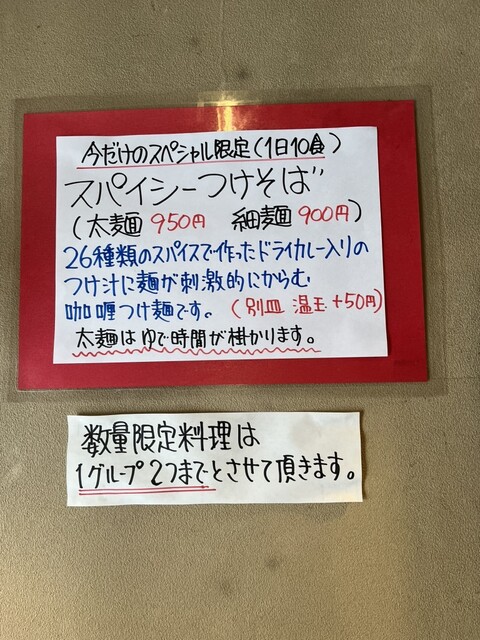 今だけのスペシャル限定(1日10食)
スパイシーつけそば
(太麺 950円 細麺 900円)
26種類のスパイスで作ったドライカレー入りの
つけ汁に麺が刺激的にからむ
咖喱つけ麺です。(別皿 温玉+50円)
太麺はゆで時間が掛かります。
数量限定料理は
1グループ2つまでとさせて頂きます。